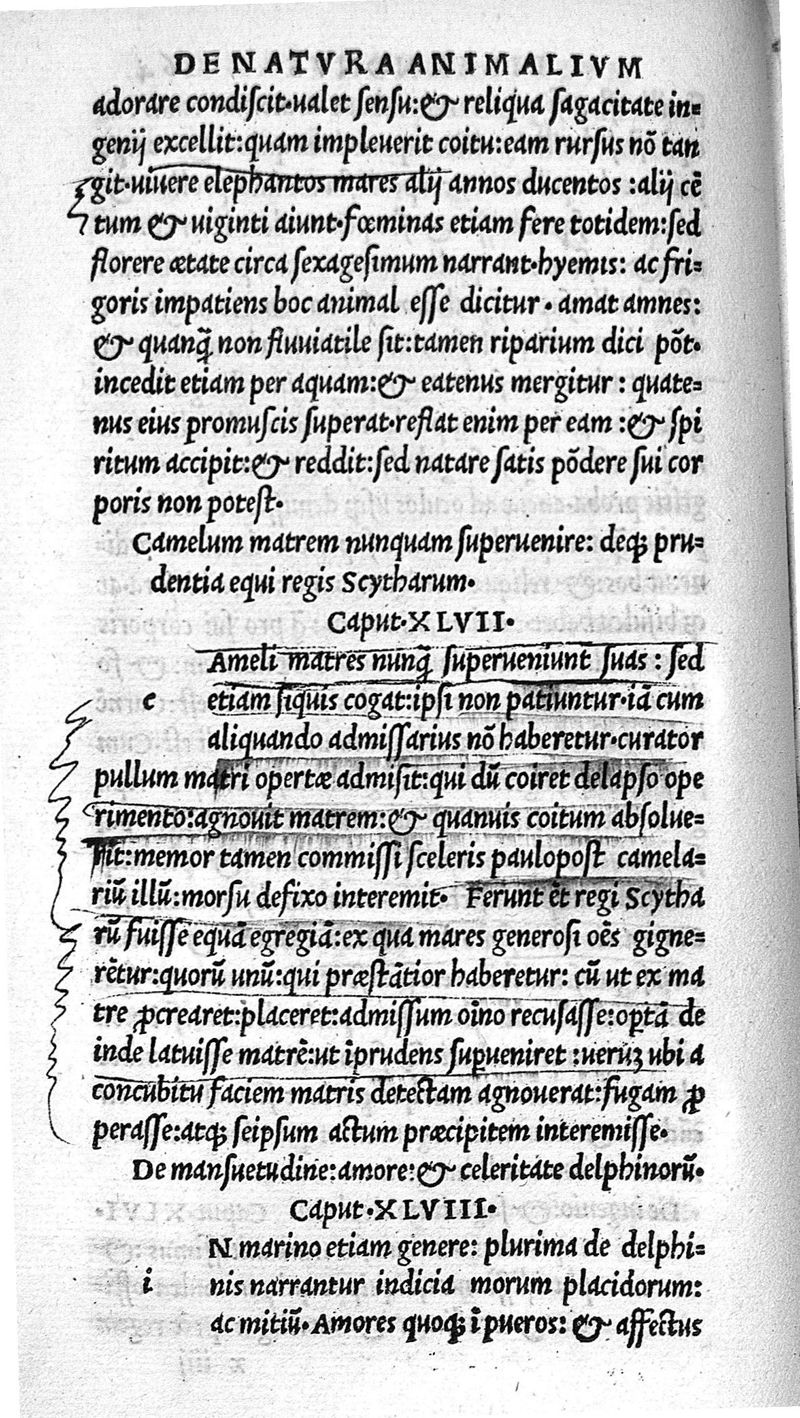 DE NATVRA ANIMALIVM
adorare condiſcit·ualet ſenſu:& reliqua ſagacitate in=
genij excellit:quam impleuerit coitu:eam rurſus nõ tan
git·uiuere elephantos mares alij annos ducentos :alij cẽ
tum & uiginti aiunt·fœminas etiam fere totidem:ſed
florere ætate circa ſexageſimum narrant·hyemis: ac fri=
goris impatiens hoc animal eſſe dicitur · amat amnes:
& quanq̃ non fluuiatile ſit:tamen riparium dici põt·
incedit etiam per aquam:& eatenus mergitur : quate=
nus eius promuſcis ſuperat·reflat enim per eam :& ſpi
ritum accipit:& reddit:ſed natare ſatis põdere ſui cor
poris non poteſt·
Camelum matrem nunquam ſuperuenire: deq; pru=
dentia equi regis Scytharum·
Caput·XLVII·
Ameli matres nunq̃ ſuperueniunt ſuas : ſed
c etiam ſiquis cogat:ipſi non patiuntur·iã cum
aliquando admiſſarius nõ haberetur·curator
pullum matri opertæ admiſit:qui dũ coiret delapſo ope
rimento:agnouit matrem:& quanuis coitum abſolue=
rit:memor tamen commiſſi ſceleris paulopoſt camela=
riũ illũ:morſu defixo interemit· Ferunt ẽt regi Scytha
rũ fuiſſe equã egregiã:ex qua mares generoſi oẽs gigne=
rẽtur:quorũ unũ:qui præſtãtior haberetur: cũ ut ex ma
tre ꝓcrearet:placeret:admiſſum oĩno recuſaſſe:oꝑtã de
inde latuiſſe matrẽ:ut ĩprudens ſuꝑueniret :ueruꝫ ubi a
concubitu faciem matris detectam agnouerat:fugam ꝓ
peraſſe:atq; ſeipſum actum præcipitem interemiſſe·
De manſuetudine:amore:& celeritate delphinorũ·
Caput·XLVIII·
N marino etiam genere: plurima de delphi=
i nis narrantur indicia morum placidorum:
ac mitiũ·Amores quoq; ĩ pueros: & affectus